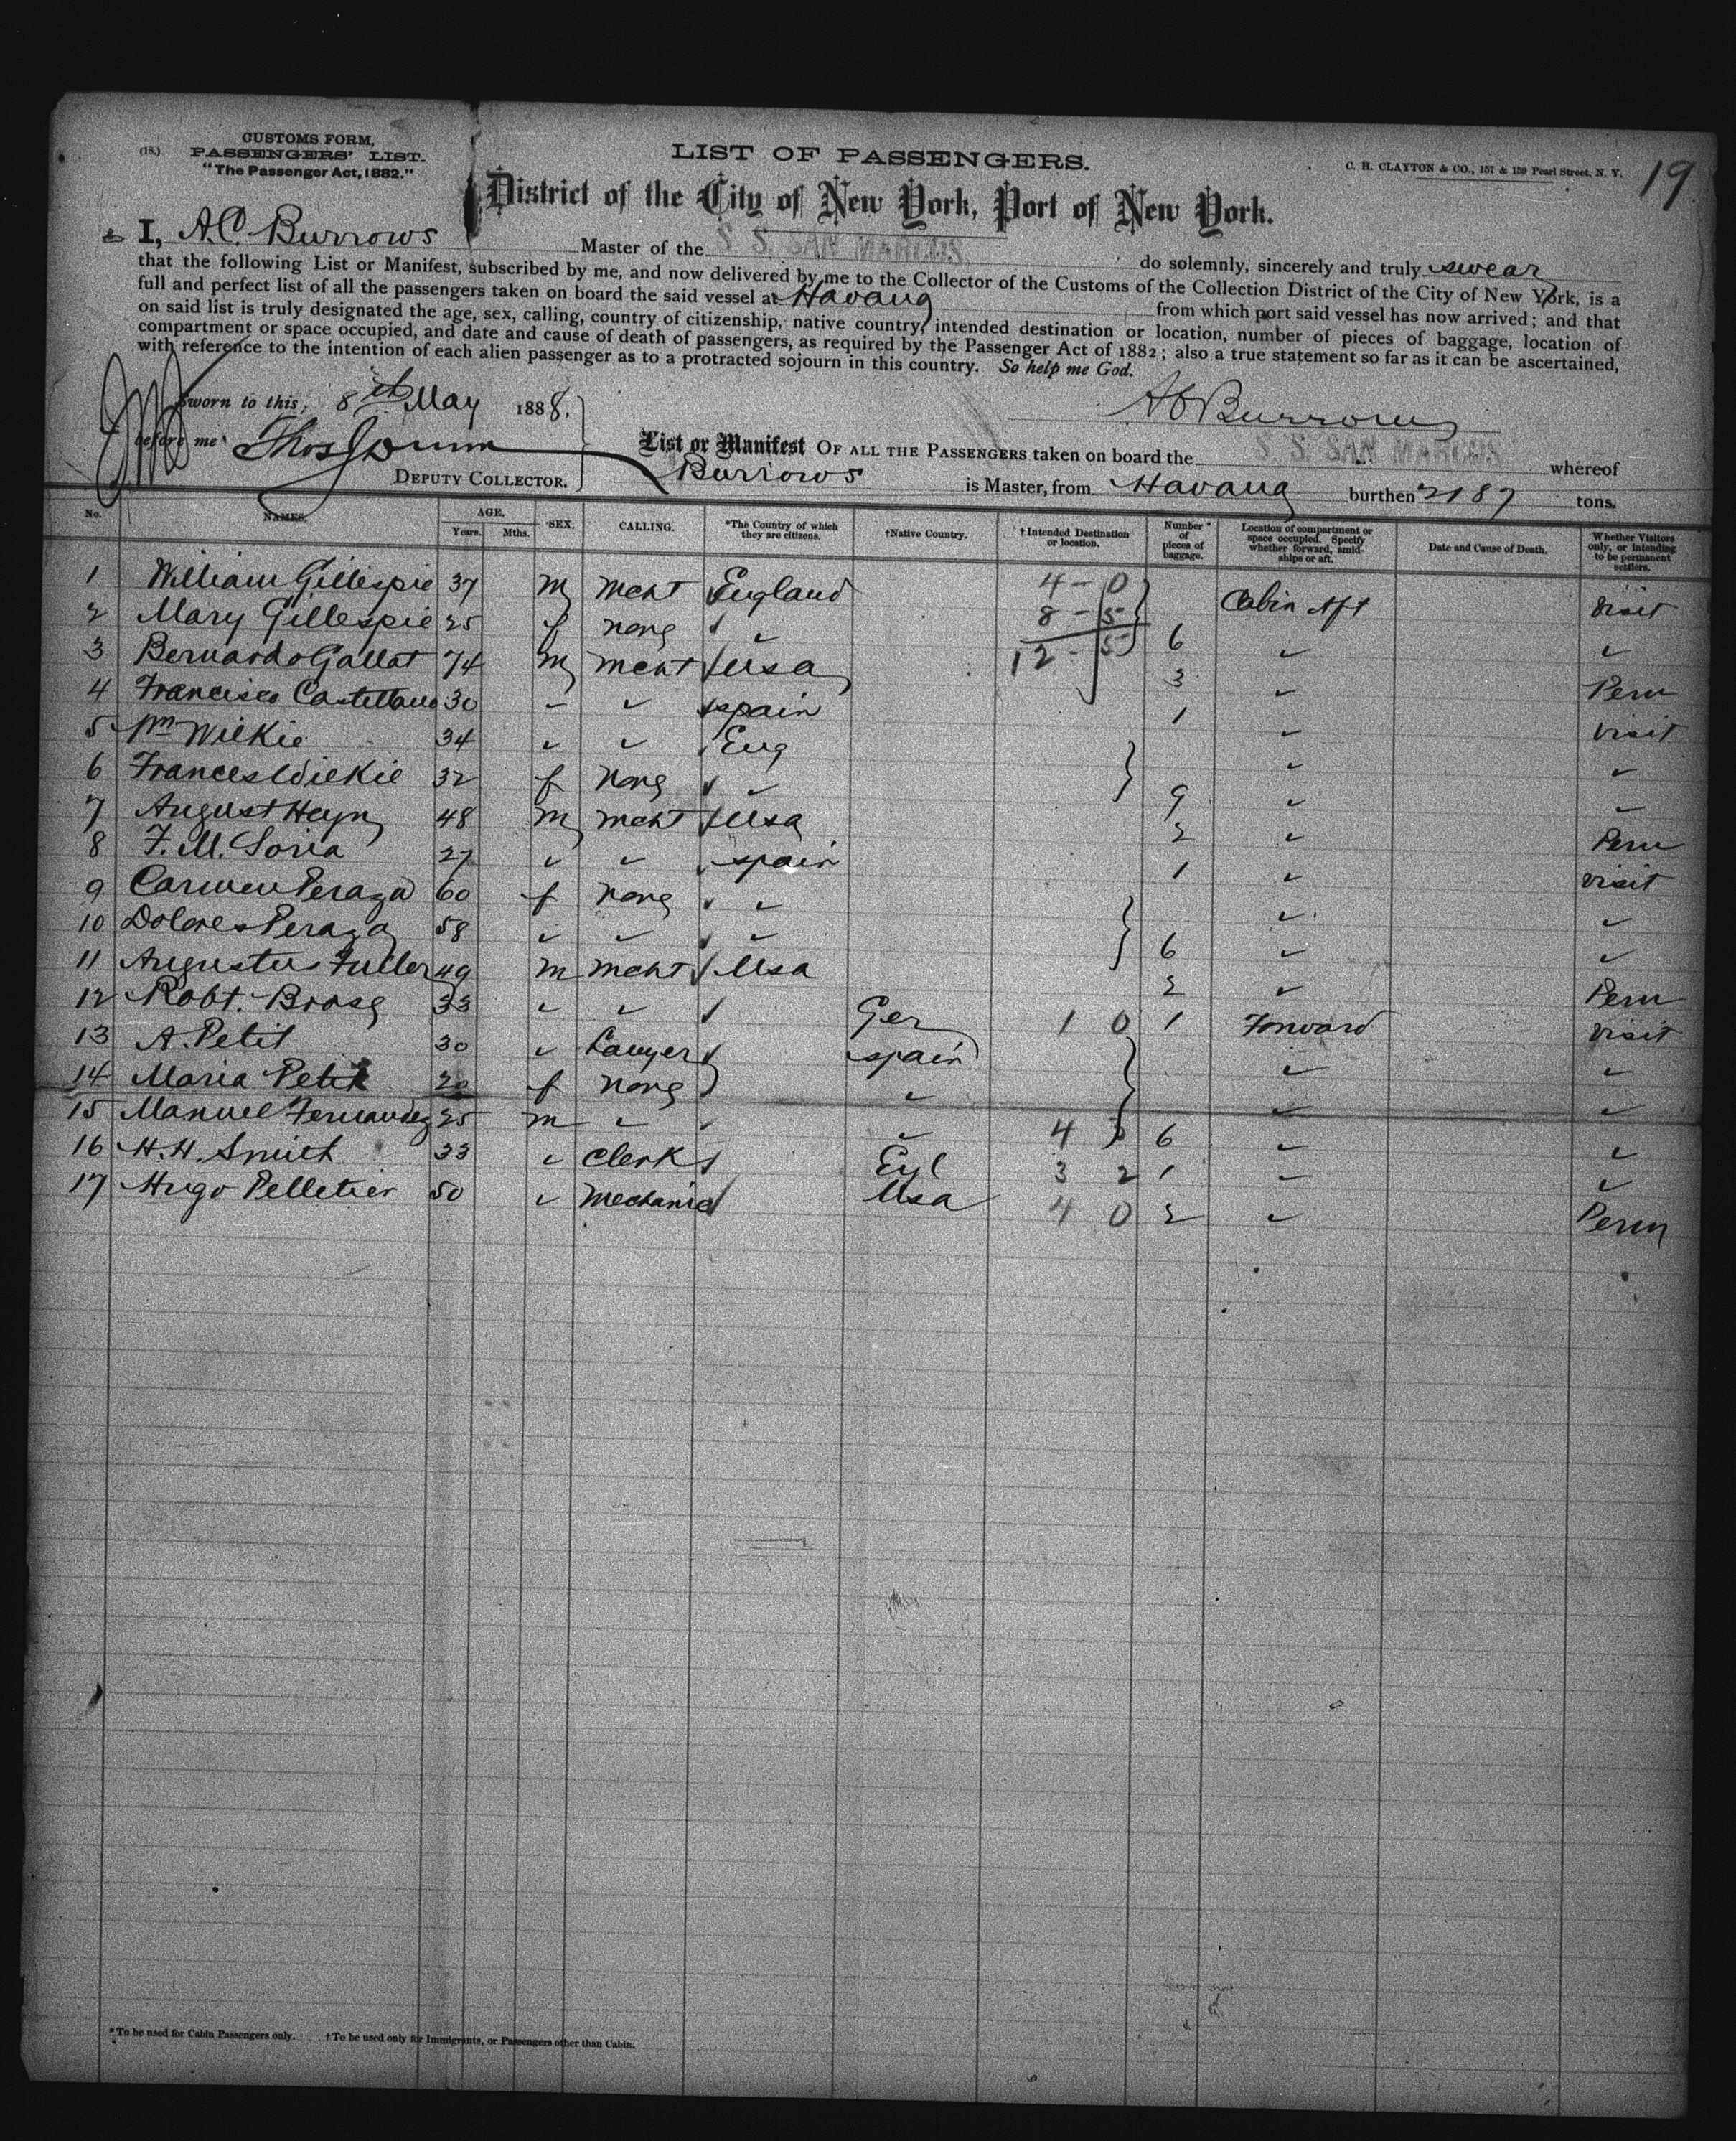 CUSTOMS FORM,
(18.) PASSENGERS' LIST.
"The Passenger Act, 1882."
LIST OF PASSENGERS.
C. H. CLAYTON & CO., 157 & 159 Pearl Street, N. Y.
19
District of the City of New York, Port of New York.
I, A.C. Burrows Master of the S. S. SAN MARCOS. do solemnly, sincerely and truly swear
that the following List or Manifest, subscribed by me, and now delivered by me to the Collector of the Customs of the Collection District of the City of New York, is a
full and perfect list of all the passengers taken on board the said vessel at Havana from which port said vessel has now arrived; and that
on said list is truly designated the age, sex, calling, country of citizenship, native country, intended destination or location, number of pieces of baggage, location of
compartment or space occupied, and date and cause of death of passengers, as required by the Passenger Act of 1882; also a true statement so far as it can be ascertained,
with reference to the intention of each alien passenger as to a protracted sojourn in this country. So help me God.
Sworn to this, 8th May 1888.
A C Burrows
before me
DEPUTY COLLECTOR.
List or Manifest OF ALL THE PASSENGERS taken on board the S. S. SAN MARCOS whereof
Burrows is Master, from Havana burthen 2187 tons.
No. NAMES. AGE. Years. Mths. SEX. CALLING. *The Country of which they are citizens. †Native Country. †Intended Destination or location. Number * of pieces of baggage. Location of compartment or space occupied. Specify whether forward, amidships or aft. Date and Cause of Death. Whether Visitors only, or intending to be permanent settlers.
1 William Gillespie 37 m mcht England 4 - 0 Cabin Aft visit
2 Mary Gillespie 25 f none ✓ 8 - 5 6 ✓ ✓
3 Bernardo Gallat 74 m mcht / Usa 12 - 5 3 ✓ Perm
4 Francisco Castellano 30 ✓ ✓ spain 1 ✓ visit
5 Wm Wilkie 34 ✓ ✓ Eng ✓ ✓
6 Frances Wilkie 32 f none ✓ ✓ 9 ✓ ✓
7 August Heyn 48 m mcht / Usa 2 ✓ Perm
8 F. M. Soria 27 ✓ ✓ spain 1 ✓ visit
9 Carmen Peraza 60 f none ✓ ✓ ✓ ✓
10 Dolores Peraza 58 ✓ ✓ ✓ ✓ 6 ✓ ✓
11 Augustus Fuller 49 m mcht / Usa 2 ✓ Perm
12 Robt. 33 ✓ ✓ / Ger 1 0 1 Forward visit
13 A. Petit 30 ✓ Lawyer / spain ✓ ✓
14 Maria Petit 20 f none ✓ ✓ ✓
15 Manuel Fernandez 25 m ✓ ✓ ✓ 4 6 ✓ ✓
16 H. H. Smith 33 ✓ Clerk / 3 2 1 ✓ ✓
17 Hugo Pelletier 50 ✓ mechanic / Usa 4 0 2 ✓ Perm
*To be used for Cabin Passengers only. †To be used only for Immigrants, or Passengers other than Cabin.